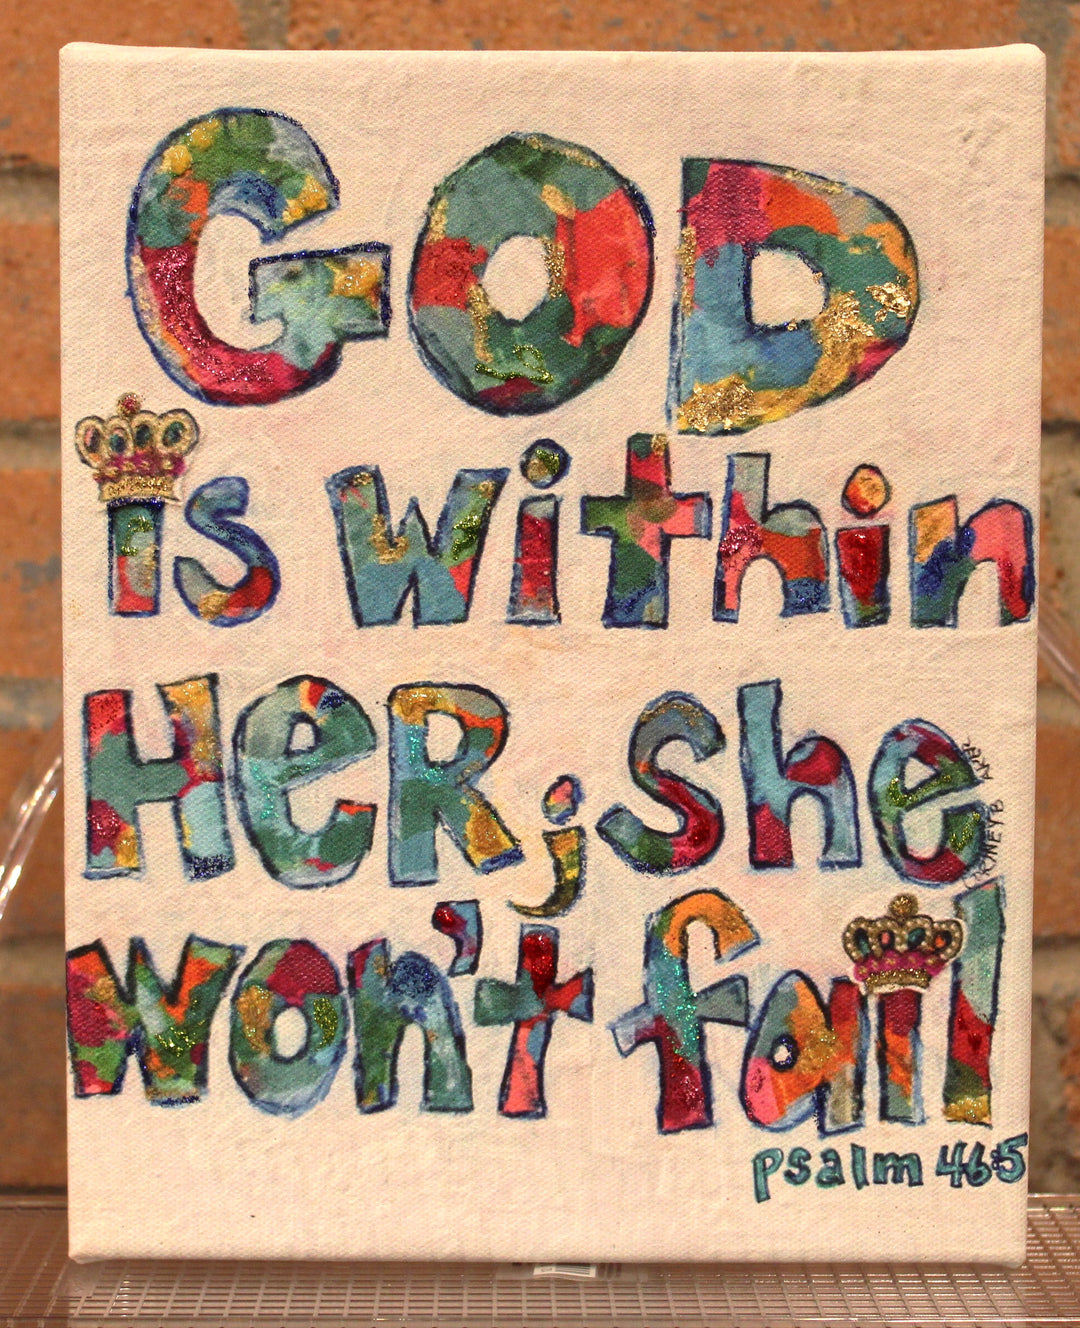 GOD
is within
HER; she
won't fail
psalm 46:5